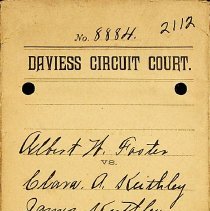 2112
No. 8884.
DAVIESS CIRCUIT COURT.
Albert W. Foster
VS.
Clara. A. Keithley
Keithley